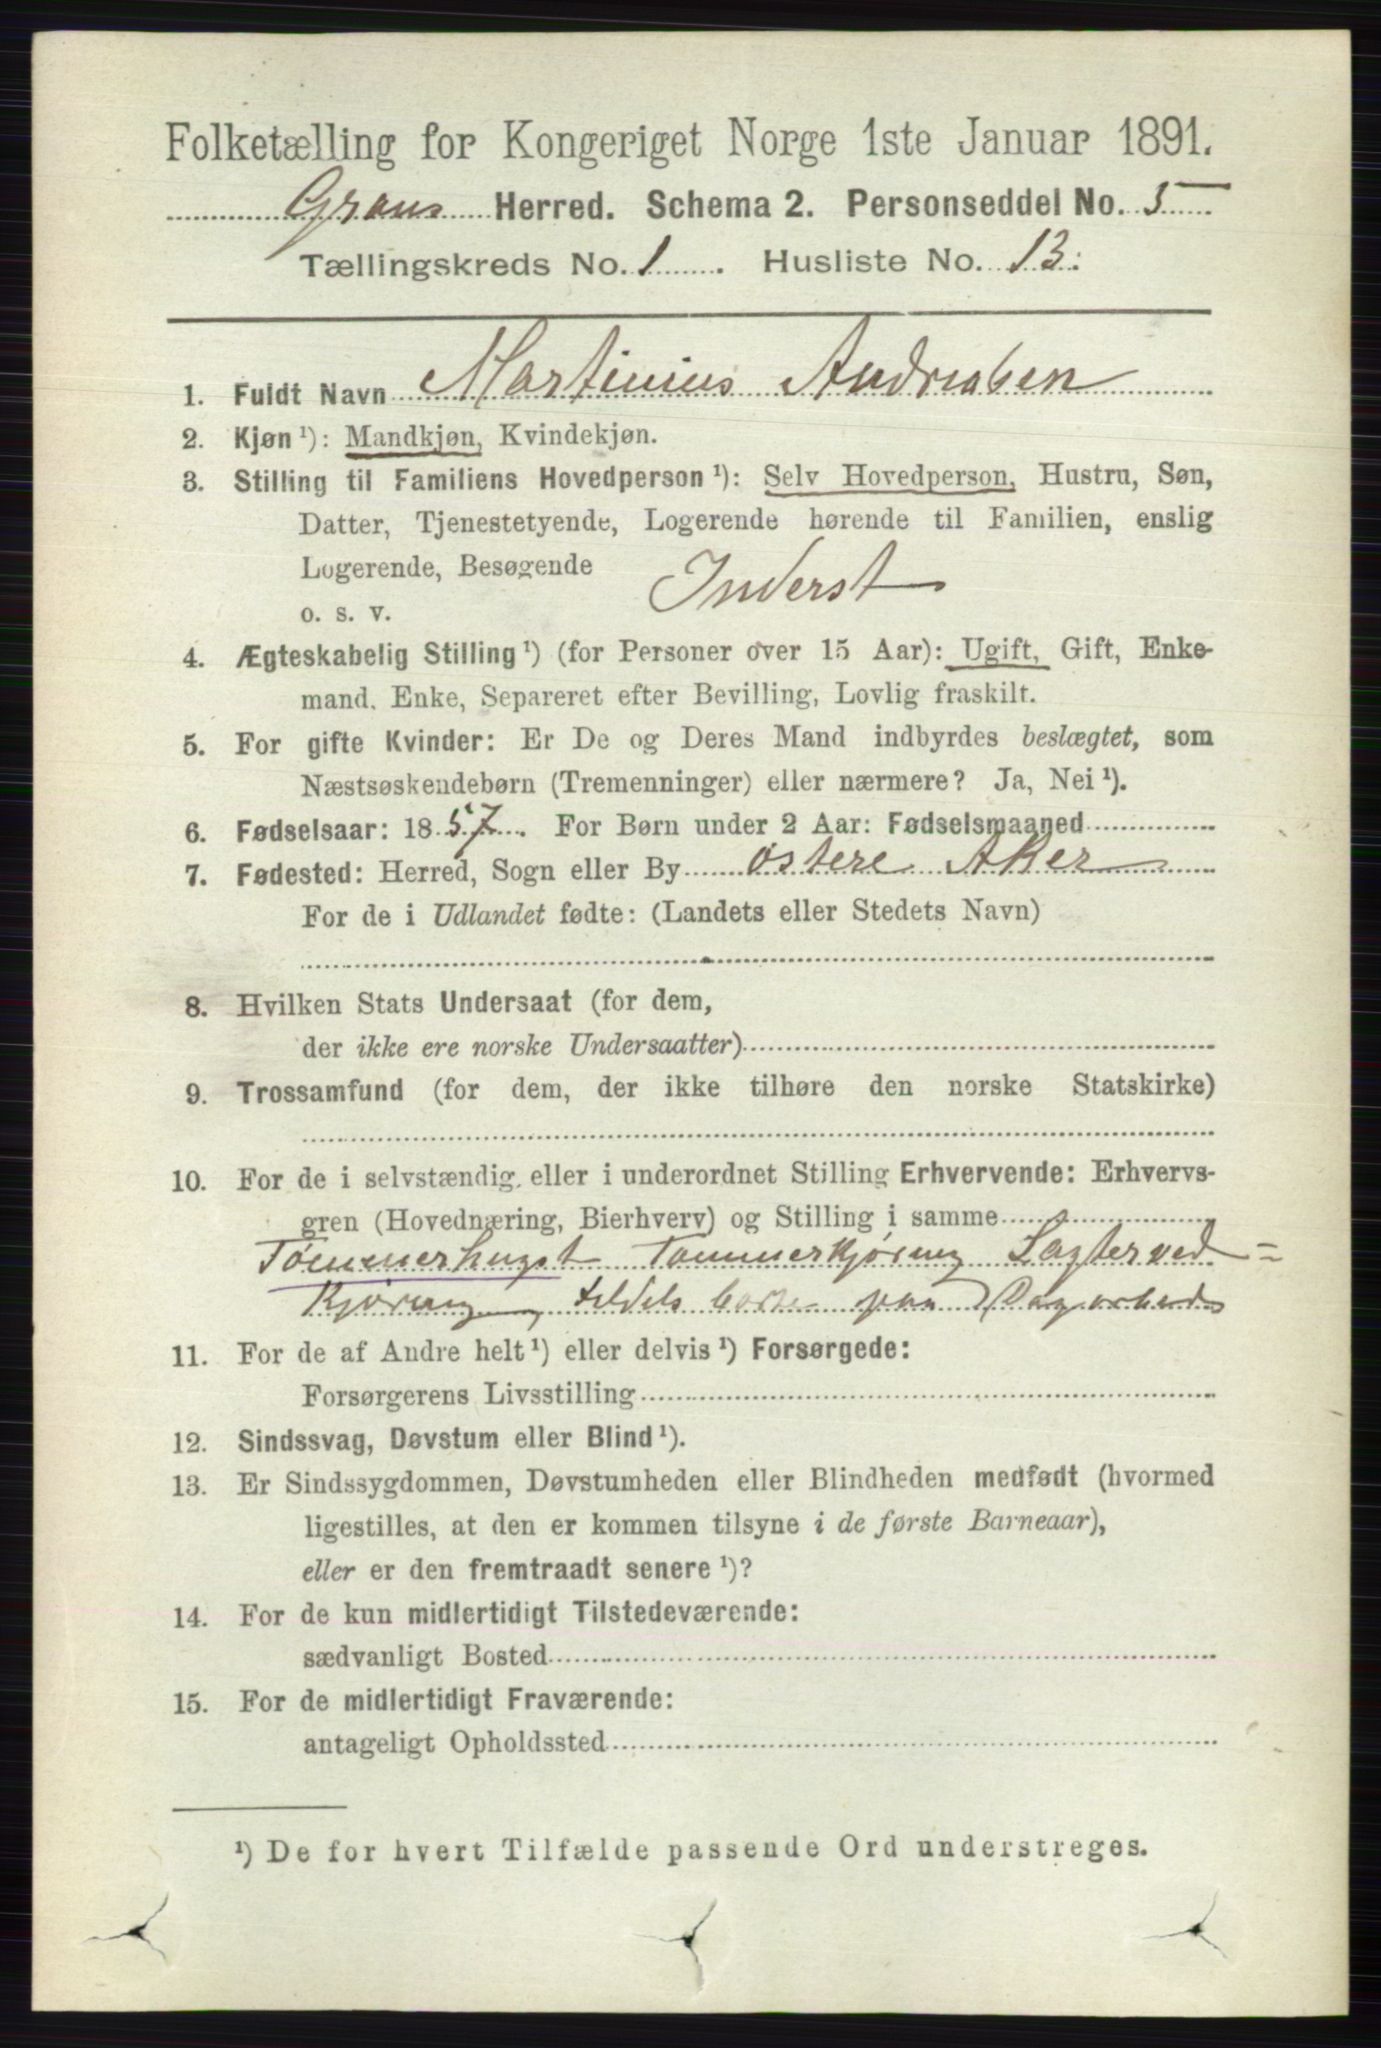 Folketælling for Kongeriget Norge 1ste Januar 1891.
Grans Herred. Schema 2. Personseddel No. 5
Tællingskreds No. 1. Husliste No. 13.
1. Fuldt Navn Martinius Andreasen
2. Kjøn ¹): Mandkjøn, Kvindekjøn.
3. Stilling til Familiens Hovedperson ¹): Selv Hovedperson, Hustru, Søn,
Datter, Tjenestetyende, Logerende hørende til Familien, enslig
Logerende, Besøgende
o. s. v. Inderst
4. Ægteskabelig Stilling ¹) (for Personer over 15 Aar): Ugift, Gift, Enke-
mand, Enke, Separeret efter Bevilling, Lovlig fraskilt.
5. For gifte Kvinder: Er De og Deres Mand indbyrdes beslægtet, som
Næstsøskendebørn (Tremenninger) eller nærmere? Ja, Nei ¹).
6. Fødselsaar: 1857. For Børn under 2 Aar: Fødselsmaaned
7. Fødested: Herred, Sogn eller By østere Aker
For de i Udlandet fødte: (Landets eller Stedets Navn)
8. Hvilken Stats Undersaat (for dem,
der ikke ere norske Undersaatter)
9. Trossamfund (for dem, der ikke tilhøre den norske Statskirke)
10. For de i selvstændig eller i underordnet Stilling Erhvervende: Erhvervs-
gren (Hovednæring, Bierhverv) og Stilling i samme
Tømmerhugst Tømmerkjøring Lagterved=
Kjøring, tildels borte paa Dagarbeide
11. For de af Andre helt ¹) eller delvis ¹) Forsørgede:
Forsørgerens Livsstilling
12. Sindssvag, Døvstum eller Blind ¹).
13. Er Sindssygdommen, Døvstumheden eller Blindheden medfødt (hvormed
ligestilles, at den er kommen tilsyne i de første Barneaar),
eller er den fremtraadt senere ¹)?
14. For de kun midlertidigt Tilstedeværende:
sædvanligt Bosted
15. For de midlertidigt Fraværende:
antageligt Opholdssted
¹) De for hvert Tilfælde passende Ord understreges.